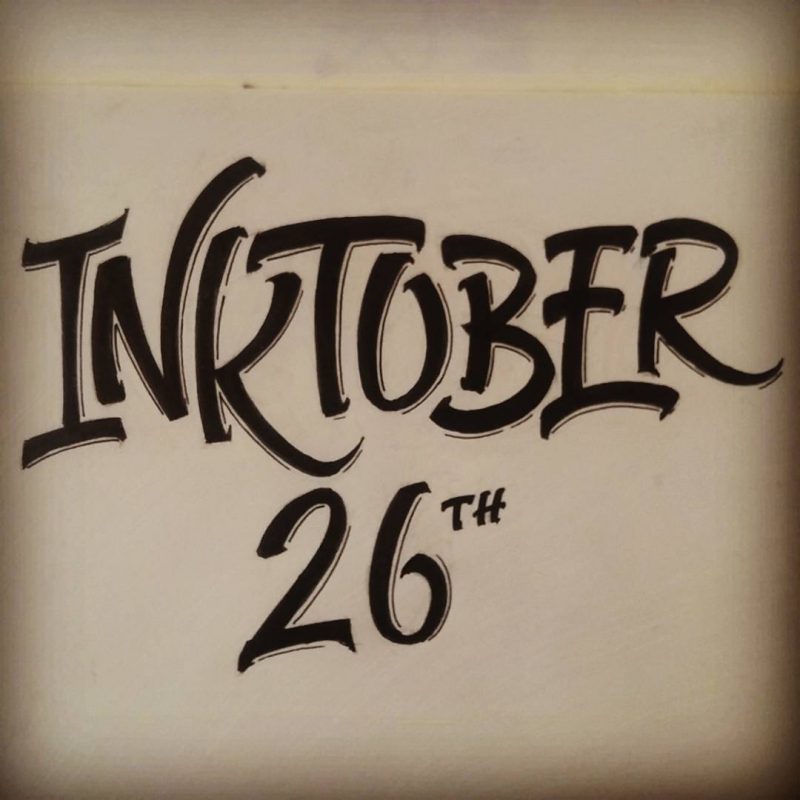 INKTOBER
26TH